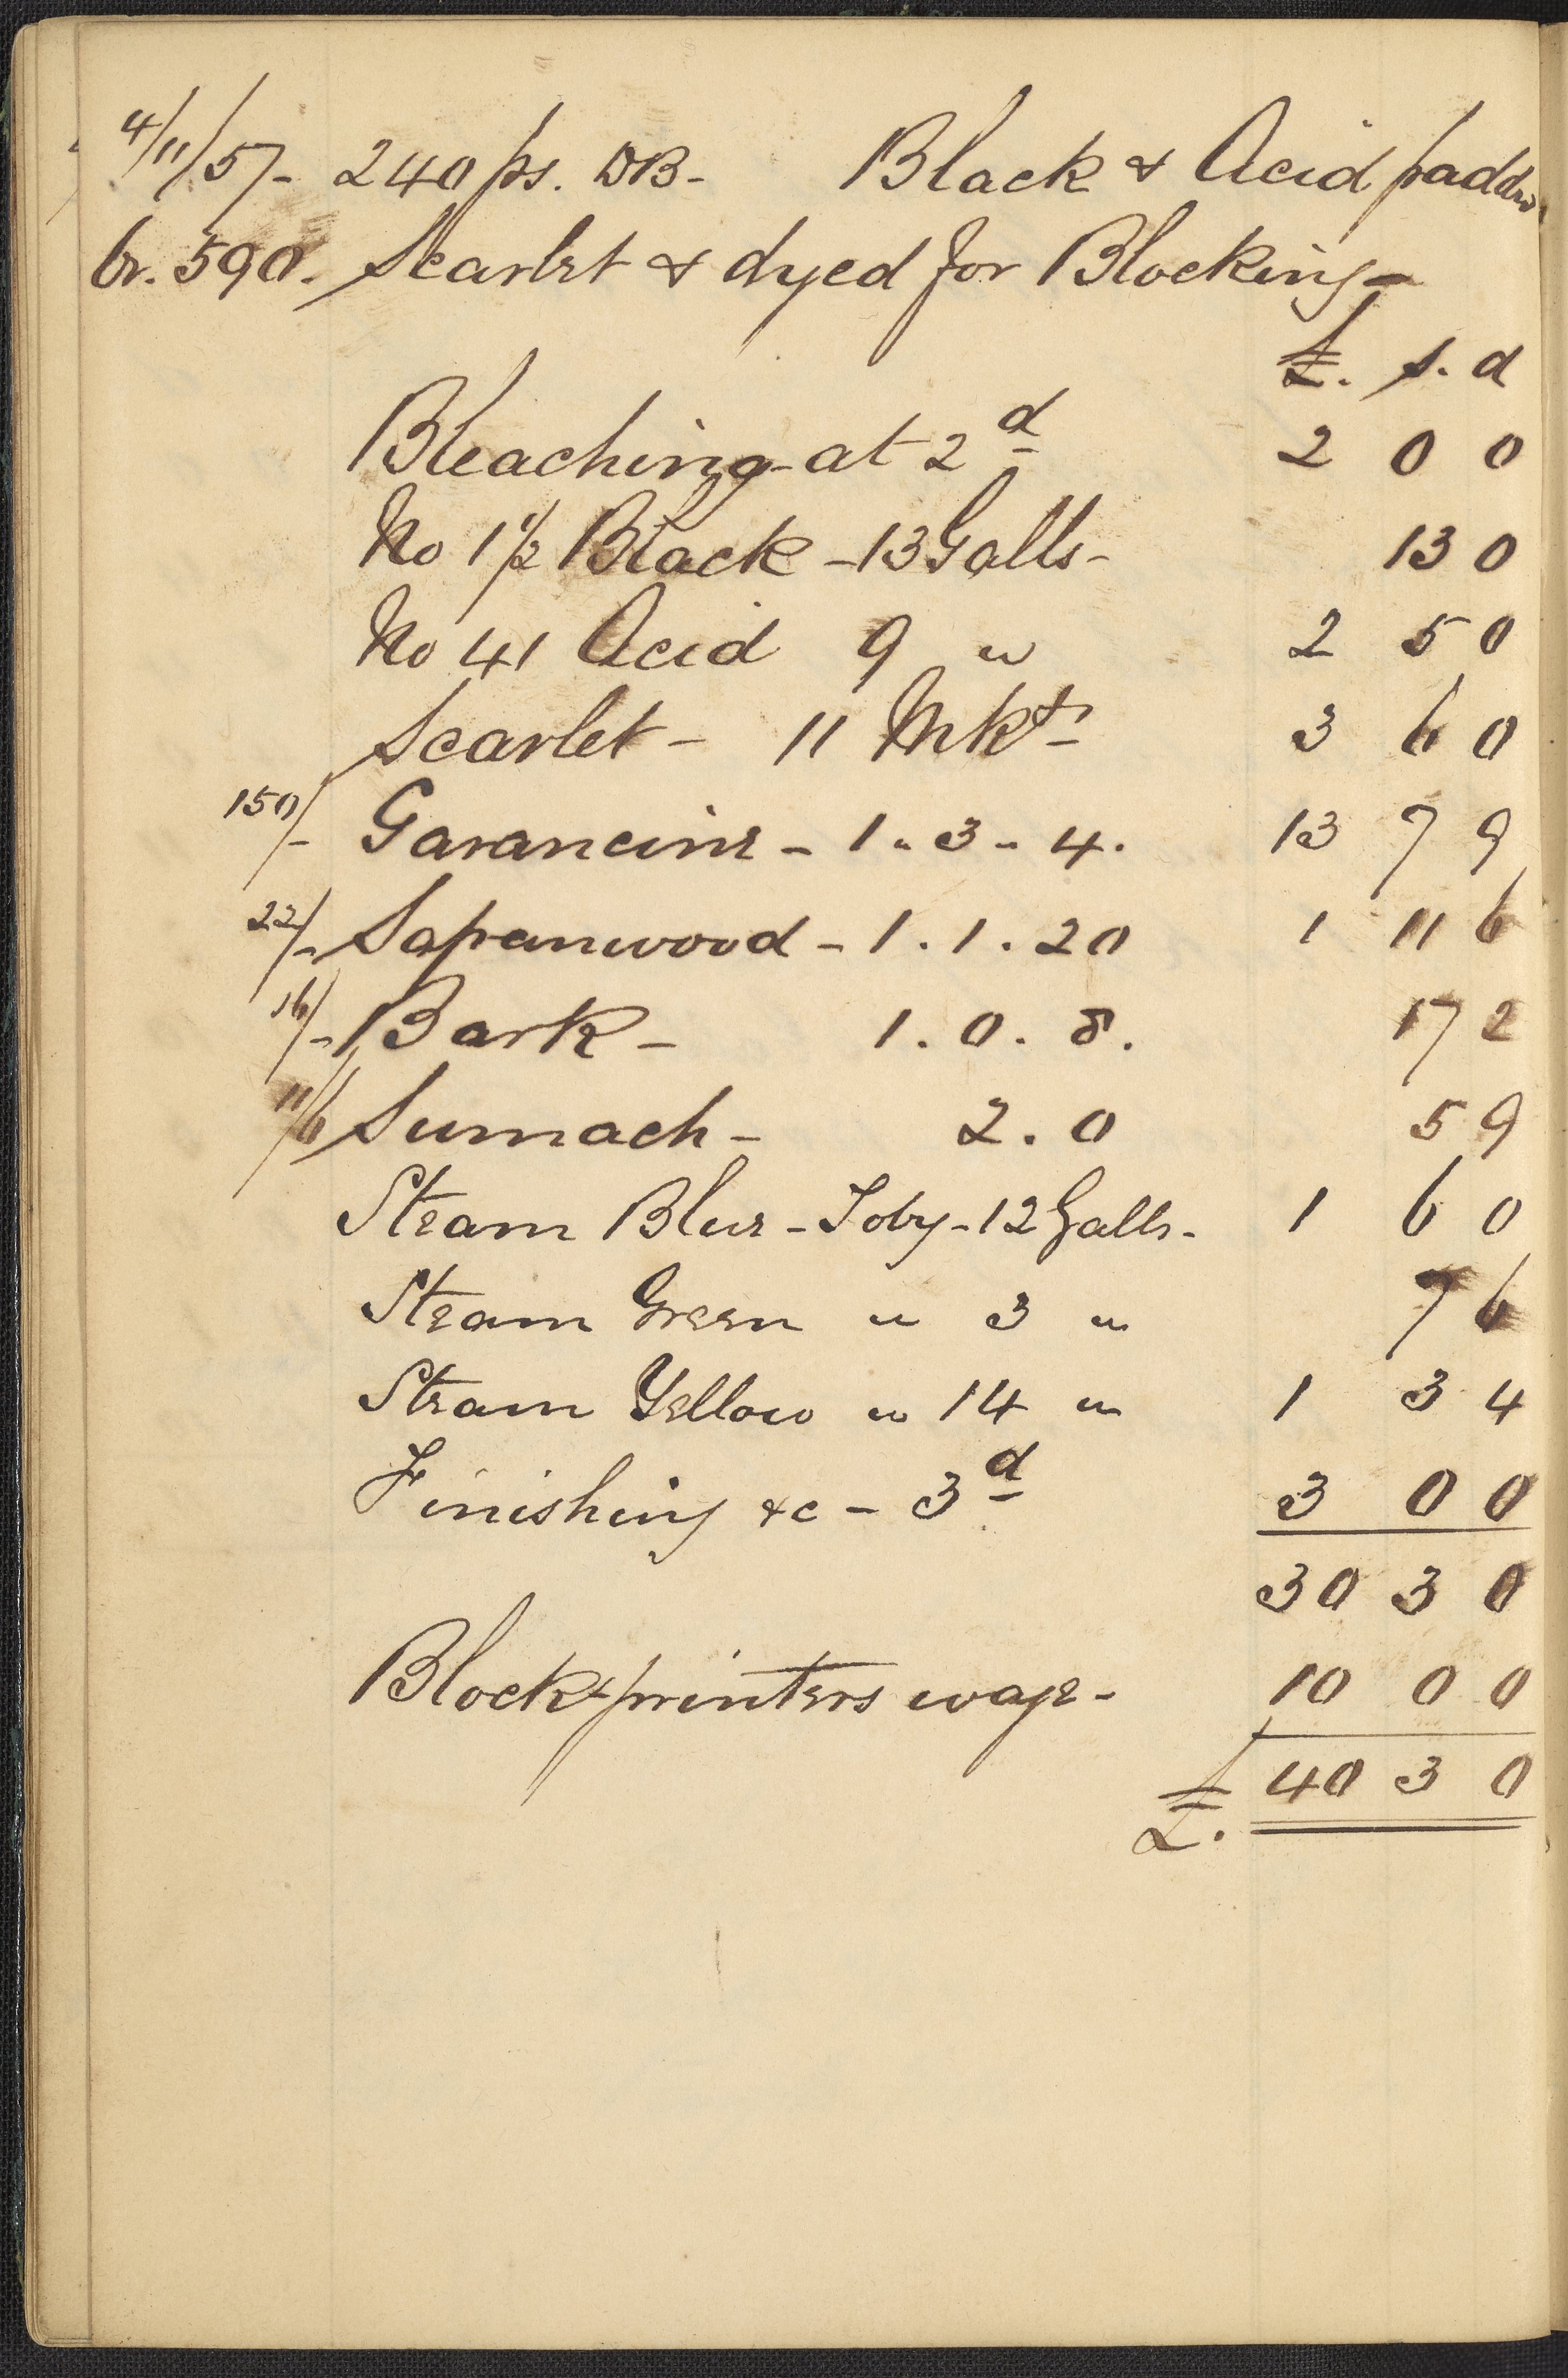 4/11/57- 240 ps. DB- Black & Acid padded
br. 590. Scarlet & dyed for Blocking-
£. s. d
Bleaching at 2d 2 0 0
No 1 1/2 Black - 13 Galls- 13 0
No 41 Acid 9 " 2 5 0
Scarlet - 11 Mkts 3 6 0
150/- Garancine - 1 " 3 " 4. 13 7 9
22/- Sapanwood - 1 . 1 . 20 1 11 6
16/- Bark - 1 . 0 . 8. 17 2
11/6 Sumach - 2 . 0 5 9
Steam Blue - Toby - 12 Galls- 1 6 0
Steam Green " 3 " 7 6
Steam Yellow " 14 " 1 3 4
Finishing &c - 3d 3 0 0
30 3 0
Blockprinters wage- 10 0 0
£. 40 3 0